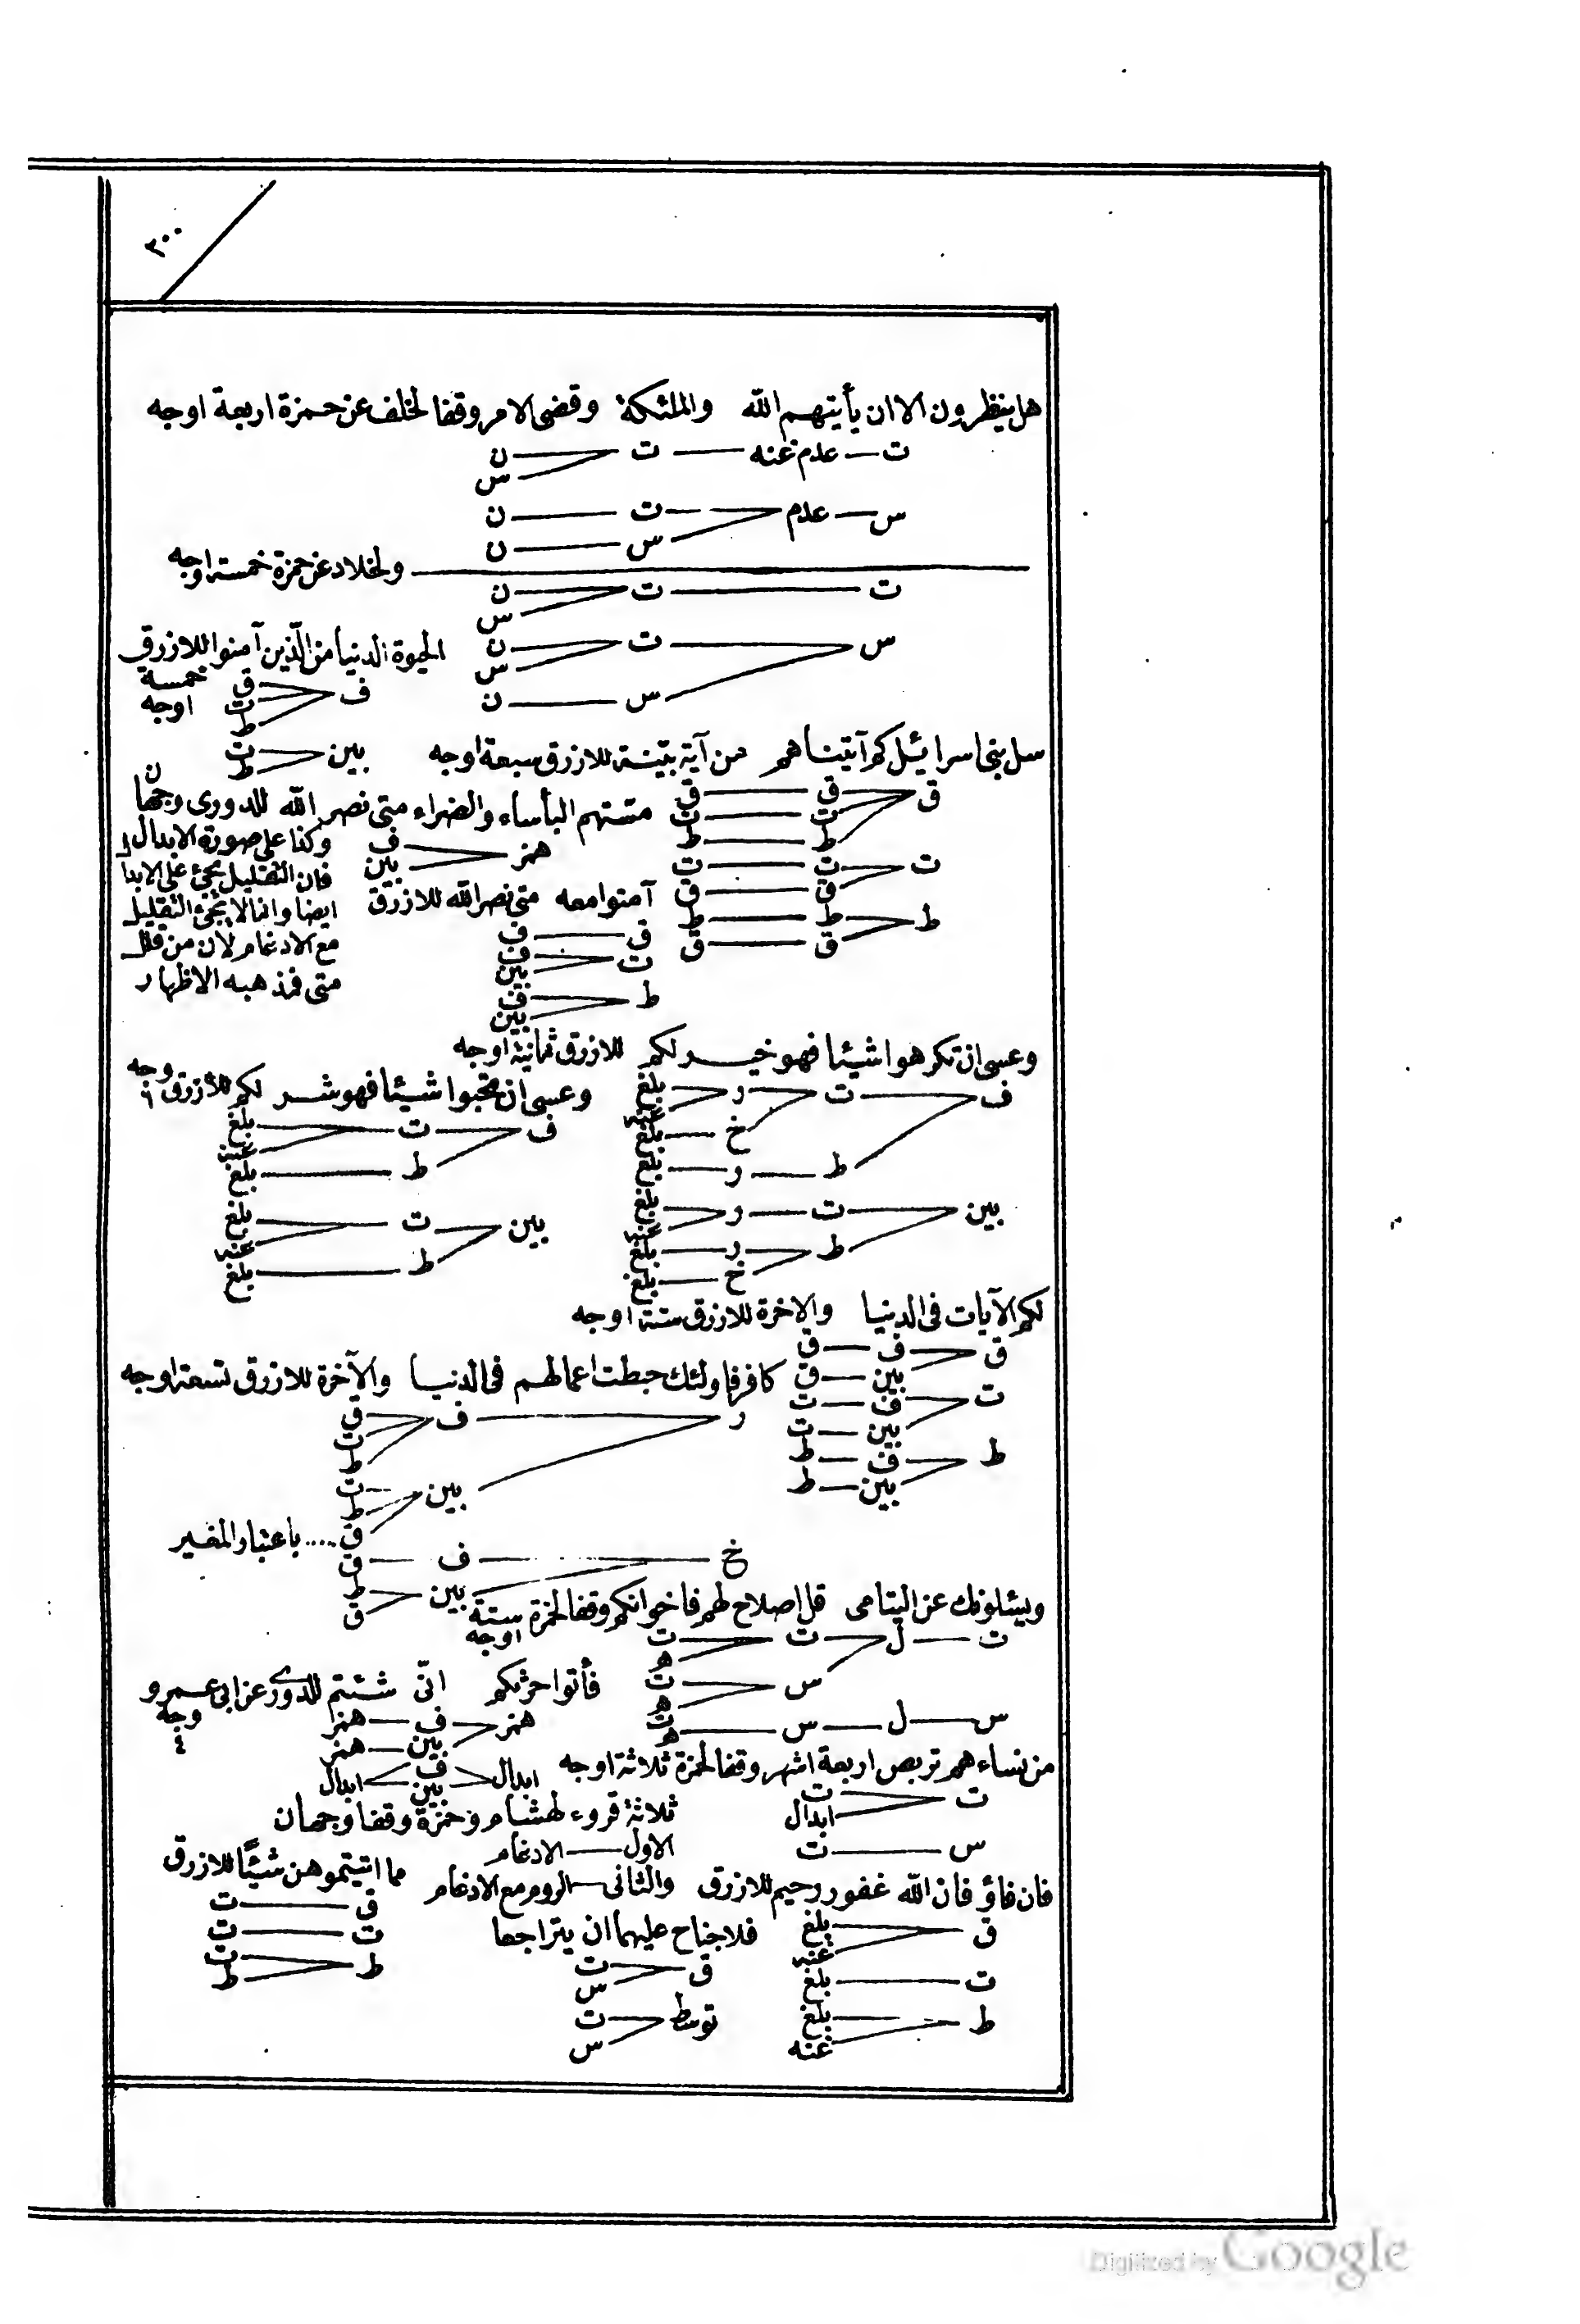 ٣٠٠
هل ينظرون الا ان يأيتهم الله والملئكة وقضى الامر وقفا لخلف عن حمزة اربعة اوجه
ت — عدم غنه — ت — ن
س
س — عدم — ت — ن
س — ن
ولخلاد عن حمزة خمسة اوجه
ت — ت — ن
س
س — ت — ن
س
س — ن
الحيوة الدنيا من الّذين آمنوا للازرق
خمسة اوجه
ف — ق
ت
ط
بين — ت
ط
سل بنى اسرائيل كم آتيناهم من آية بيّنة للازرق سبعة اوجه
ق — ق — ق
ت — ت
ط — ط
ت — ت — ت
ق — ق
ط — ط — ط
ق — ق
مسّتهم البأساء والضراء متى نصر الله للدورى وجها
ن
همز — ف
بين
وكذا على صورة الابدال
فان التقليل يجئ على الابدا
ل
ايضا وانما لا يجئ التقليل
مع الادغام لان من قلل
متى فمذهبه الاظهار
آمنوا معه متى نصر الله للازرق
ق — ف
ت — ف
بين
ط — ف
بين
وعسى ان تكرهوا شيئا فهو خير لكم للازرق ثمانية اوجه
ف — ت — ر — بلغ
غنه
خ — بلغ
ط — ر — بلغ
بين — ت — ر — بلغ
غنه
ط — ر — بلغ
خ — بلغ
وعسى ان تحبوا شيئا فهو شر لكم للازرق ٦ وجه
ف — ت — بلغ
غنه
ط — بلغ
بين — ت — بلغ
غنه
ط — بلغ
لكم الآيات فى الدنيا والاخرة للازرق ستة اوجه
ق — ف — ق
بين — ق
ت — ف — ت
بين — ت
ط — ف — ط
بين — ط
كافر فاولئك حبطت اعمالهم فى الدنيا والآخرة للازرق تسعة اوجه
ر — ف — ق
ت
ط
بين — ت
ط
ق .... باعتبار المغير
خ — ف — ق
بين — ط
ق
ويسئلونك عن اليتامى قل اصلاح لهم فاخوانكم وقفا لحمزة ستة اوجه
ت — ل — ت — ت
ه
س — ت
ه
س — ل — س — ت
ه
فأتوا حرثكم انّى شئتم للدورى عن ابى عمرو
٤ وجه
همز — ف — همز
بين — همز
ابدال — ف — ابدال
بين
من نساءهم تربص اربعة اشهر وقفا لحمزة ثلاثة اوجه
ت — ت
ابدال
س — ت
ثلاثة قروء لهشام وحمزة وقفا وجهان
الاول — الادغام
والثانى — الروم مع الادغام
مما اتيتموهن شيئًا للازرق
ق — ت
ت — ت
ط — ت
ط
فان فاؤ فان الله غفور رحيم للازرق
ق — بلغ
غنه
ت — بلغ
ط — بلغ
غنه
فلا جناح عليهما ان يتراجعا
ق — ت
س
توسط — ت
س
Digitized by Google